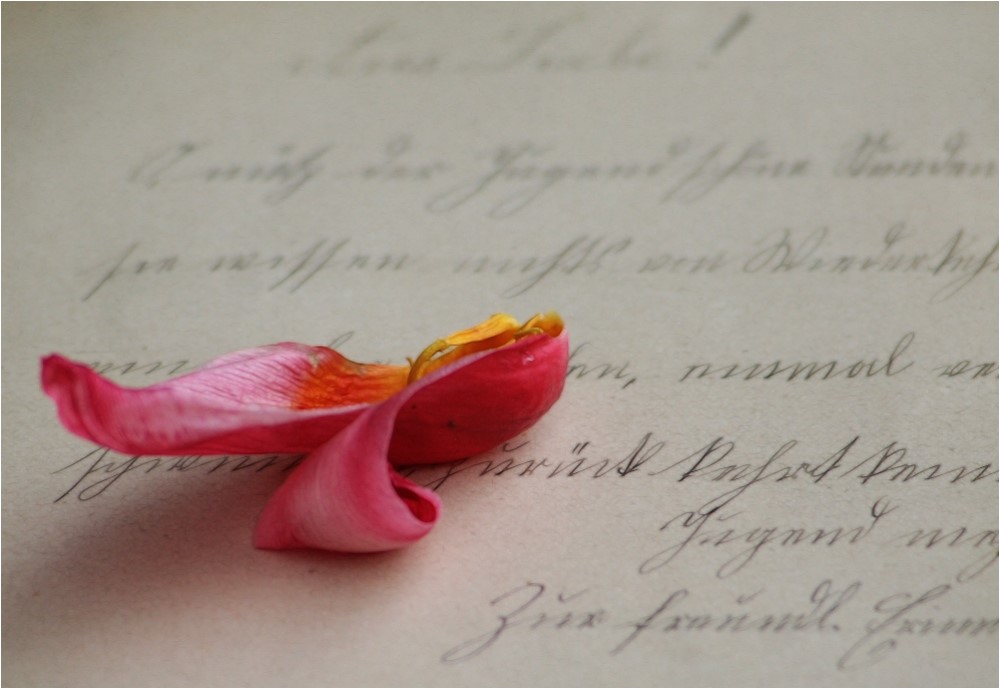 Liebe!
der Jugend schöne Stunden
sie wissen nichts von Wiederkeh
en, einmal
zurück kehrt kein
Jugend
Zur freundl. Erinn